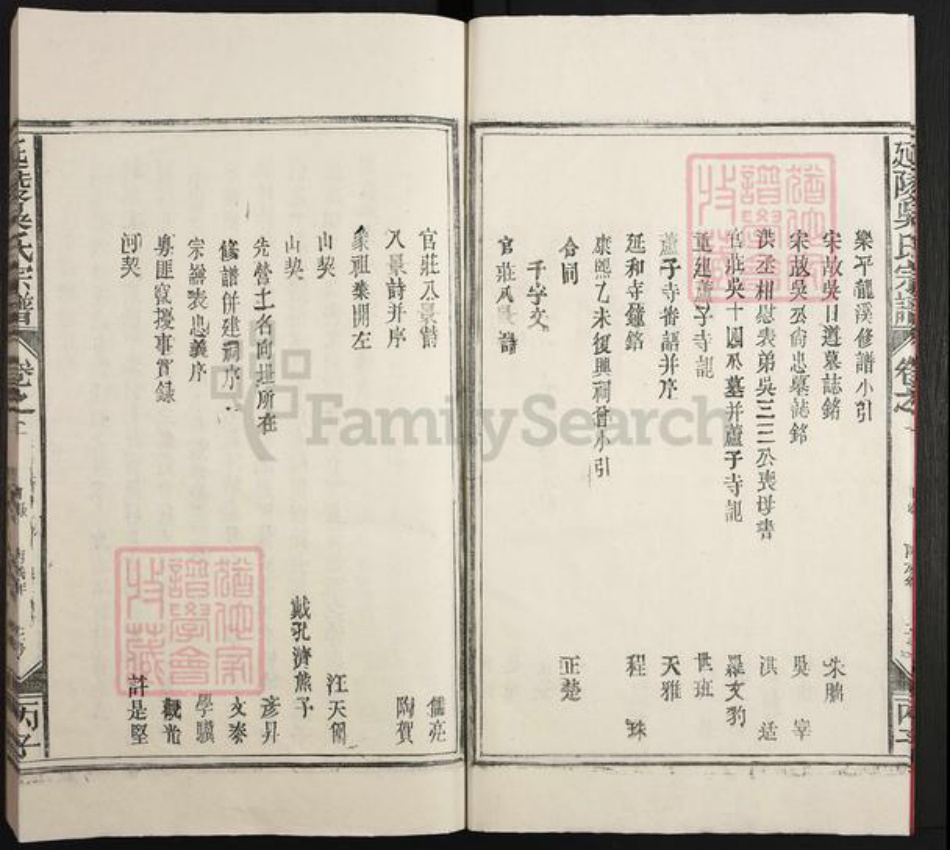 延陵吳氏宗譜 卷之
樂平龍溪修譜小引
宋故吳日遵墓誌銘 朱鵬
宋故吳丞尚忠墓誌銘 吳宰
洪丞相慰表弟吳三三公喪母書 洪适
官莊吳十四丞墓并蘆子寺記 羅文豹
重建蘆子寺記 世班
蘆子寺番語并序 天雅
延和寺鐘銘 程珠
康熙乙未復興祠會小引
合同 正楚
千字文
官莊八景詩
官莊八景詩 儒亮
八景詩并序 陶賀
眾祖業開左
山契 汪天
山契 戴孔濟熊予
先塋土名向址所在 彥昇
修譜併建祠序 文泰
宗譜表忠義序 學驥
粵匪竄擾事實錄 觀光
河契 許是堅
延陵吳氏宗譜 卷之
丙子
FamilySearch
譜學會
收藏
譜學會
收藏